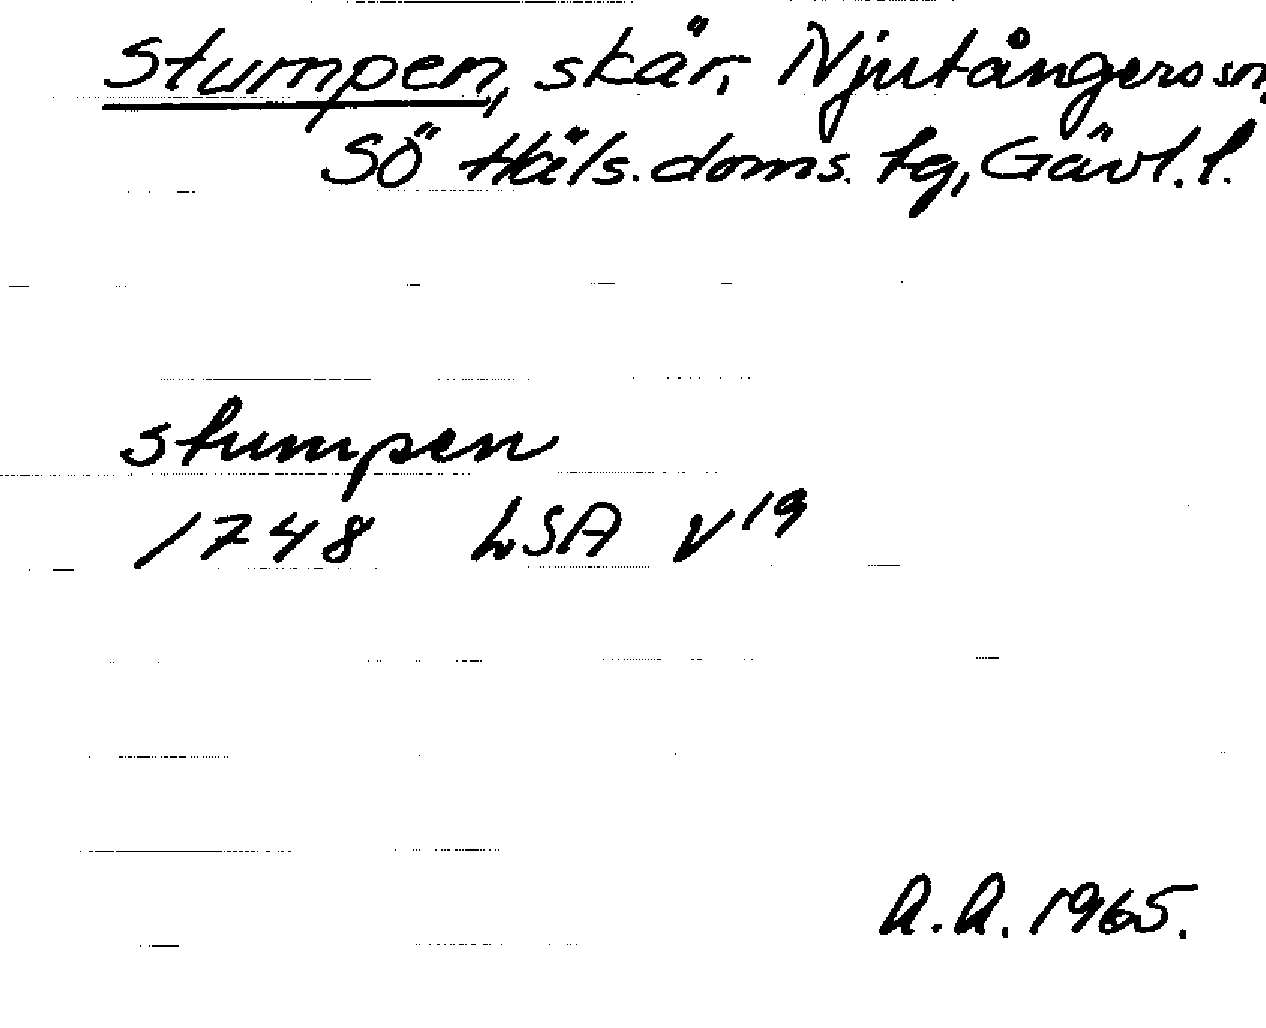 Stumpen, skär, Njutångers sn,
SÖ Häls. doms. tg, Gävl. l.
stumpen
1748 LSA V 19
A.A. 1965.